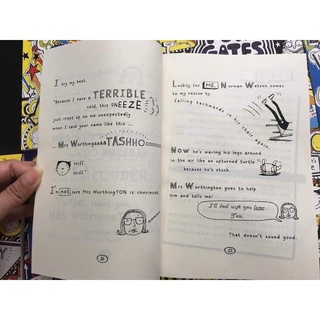 GATES
I try my best.
"Because I have a TERRIBLE
cold, this SNEEZE
just crept up on me unexpectedly
when I said your name like this ...
Mrs WorthingaaaTASHHOoooooo
sniff
sniff."
I'm not sure Mrs WorthingTON is convinced.
26
Luckily for ME, Norman Watson comes
to my rescue by
falling backwards in his chair again.
NOW he's waving his legs around
in the air like an upturned turtle
because he's stuck.
Mrs Worthington goes to help
him and tells me:
I'll deal with you later
Tom.
That doesn't sound good.
27